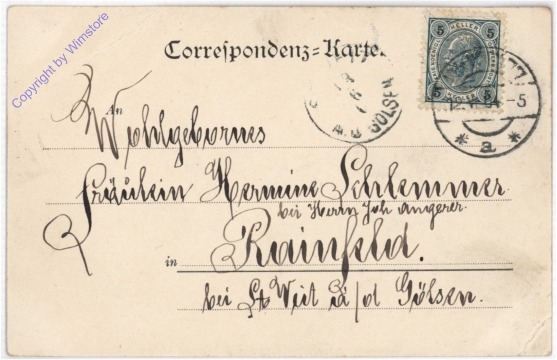 Copyright by Wimstore
Correspondenz-Karte.
5 HELLER 5
5 5
A.D. GÖLSEN
-5
* a *
An
Wohlgebornes
Fräulein Hermine Schlemmer
bei Herrn Joh Angerer.
in Rainfeld.
bei St Veit a/d Gölsen.